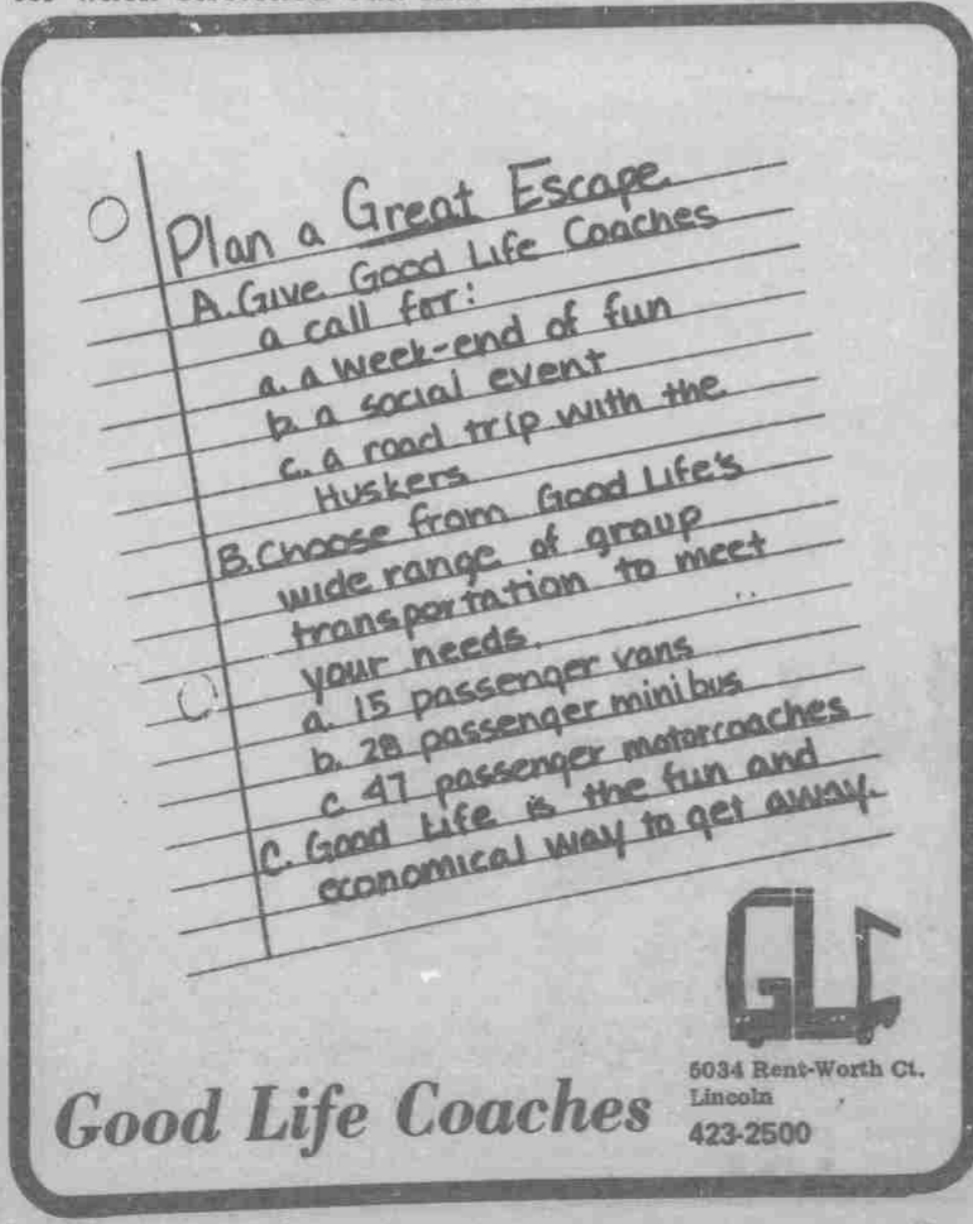 Plan a Great Escape.
A. Give Good Life Coaches
a call for:
a. a week-end of fun
b. a social event
c. a road trip with the
Huskers
B. Choose from Good Life's
wide range of group
transportation to meet
your needs.
a. 15 passenger vans
b. 28 passenger minibus
c. 47 passenger motorcoaches
C. Good Life is the fun and
economical way to get away.
GLC
5034 Rent-Worth Ct.
Lincoln
Good Life Coaches
423-2500